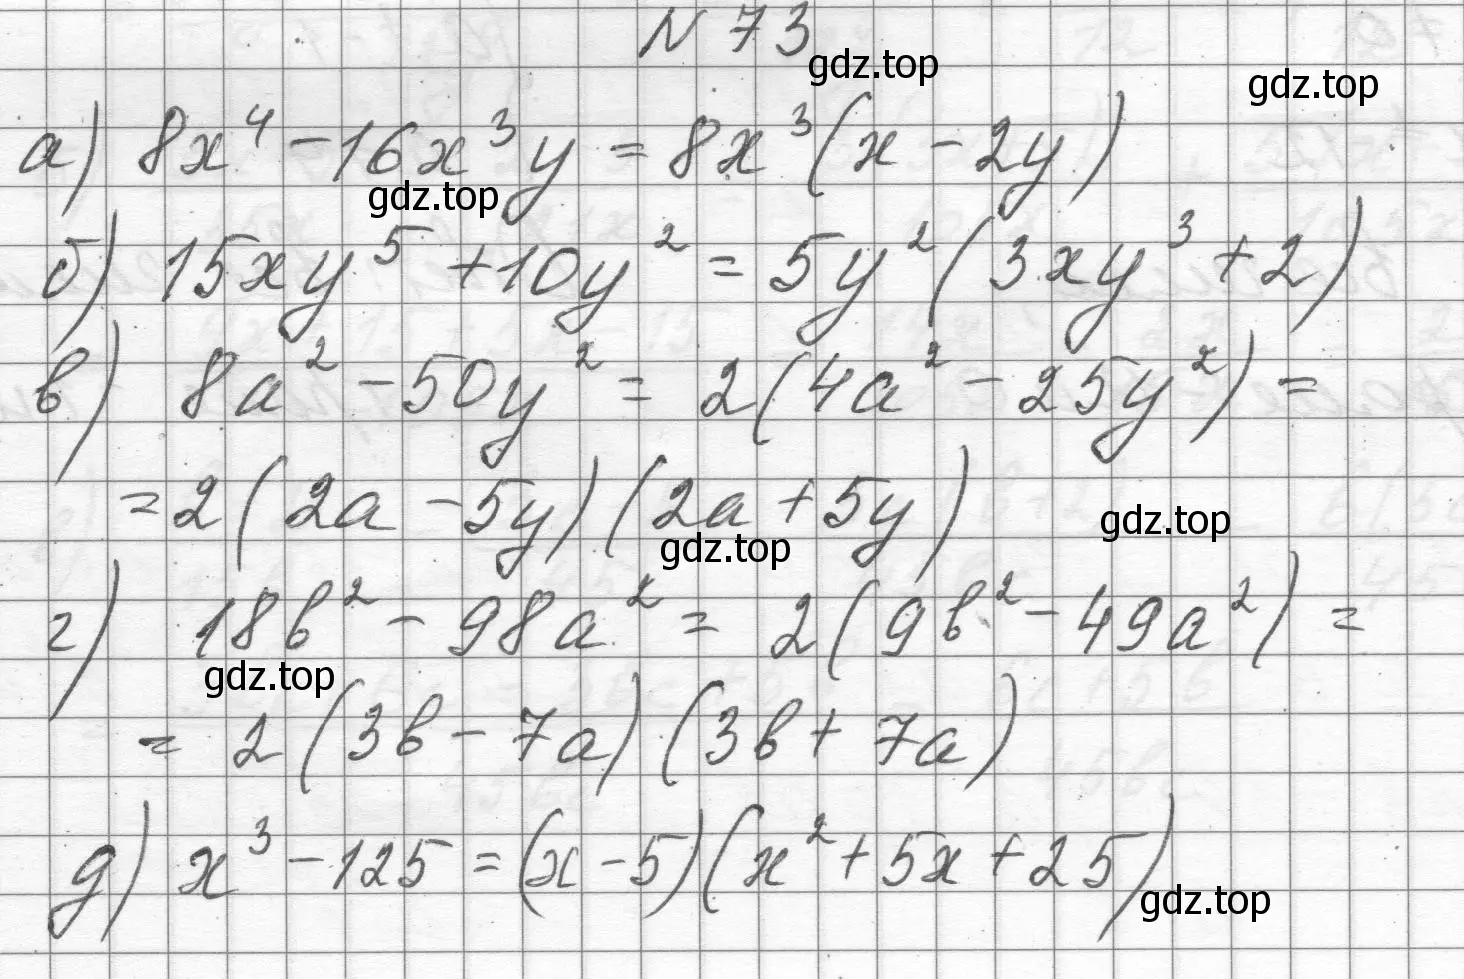 N 73
gdz.top
gdz.top
а) 8x⁴ - 16x³y = 8x³(x - 2y)
gdz.top
б) 15xy⁵ + 10y² = 5y²(3xy³ + 2)
в) 8a² - 50y² = 2(4a² - 25y²) =
= 2(2a - 5y)(2a + 5y)
gdz.top
gdz.top
г) 18b² - 98a² = 2(9b² - 49a²) =
gdz.top
= 2(3b - 7a)(3b + 7a)
д) x³ - 125 = (x - 5)(x² + 5x + 25)
gdz.top